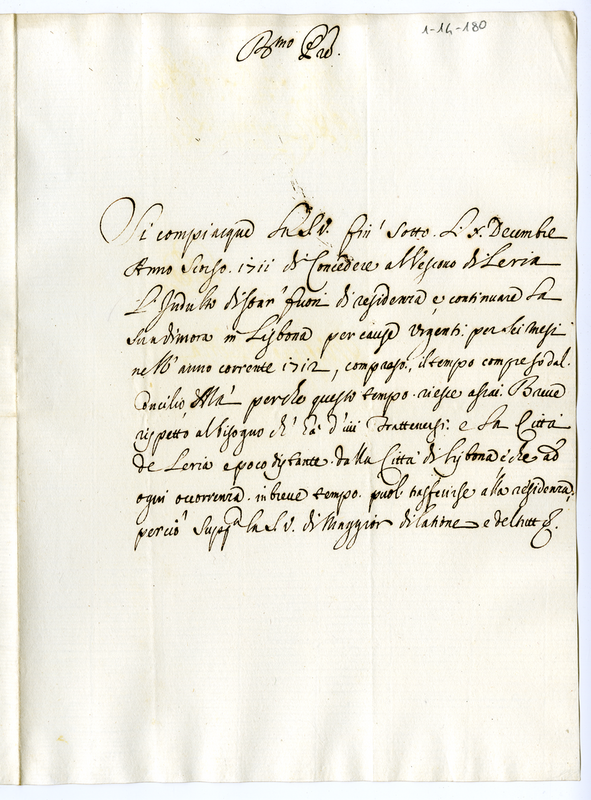 1-14-180
B.mo Pre.
Si compiacque la S.V. fin' sotto li X. Decembre
Anno scorso 1711 di Concedere al Vescouo di Leria
L'Indulto di star' fuori di residenza e continuare la
sua dimora in Lisbona per cause Vrgenti per sei mesi
nell' anno corrente 1712, compreso, il tempo compreso dal
Concilio Mà perche questo tempo riesce assai Breue
rispetto al bisogno ch' hà d'iui Trattenersi e la Città
de Leria e poco distante dalla Città di Lisbona e che ad
ogni occorrenza in breue tempo puol' trasferirse alla residenza,
perciò Supp.a la S.V. di Maggior dilatione e del tutt